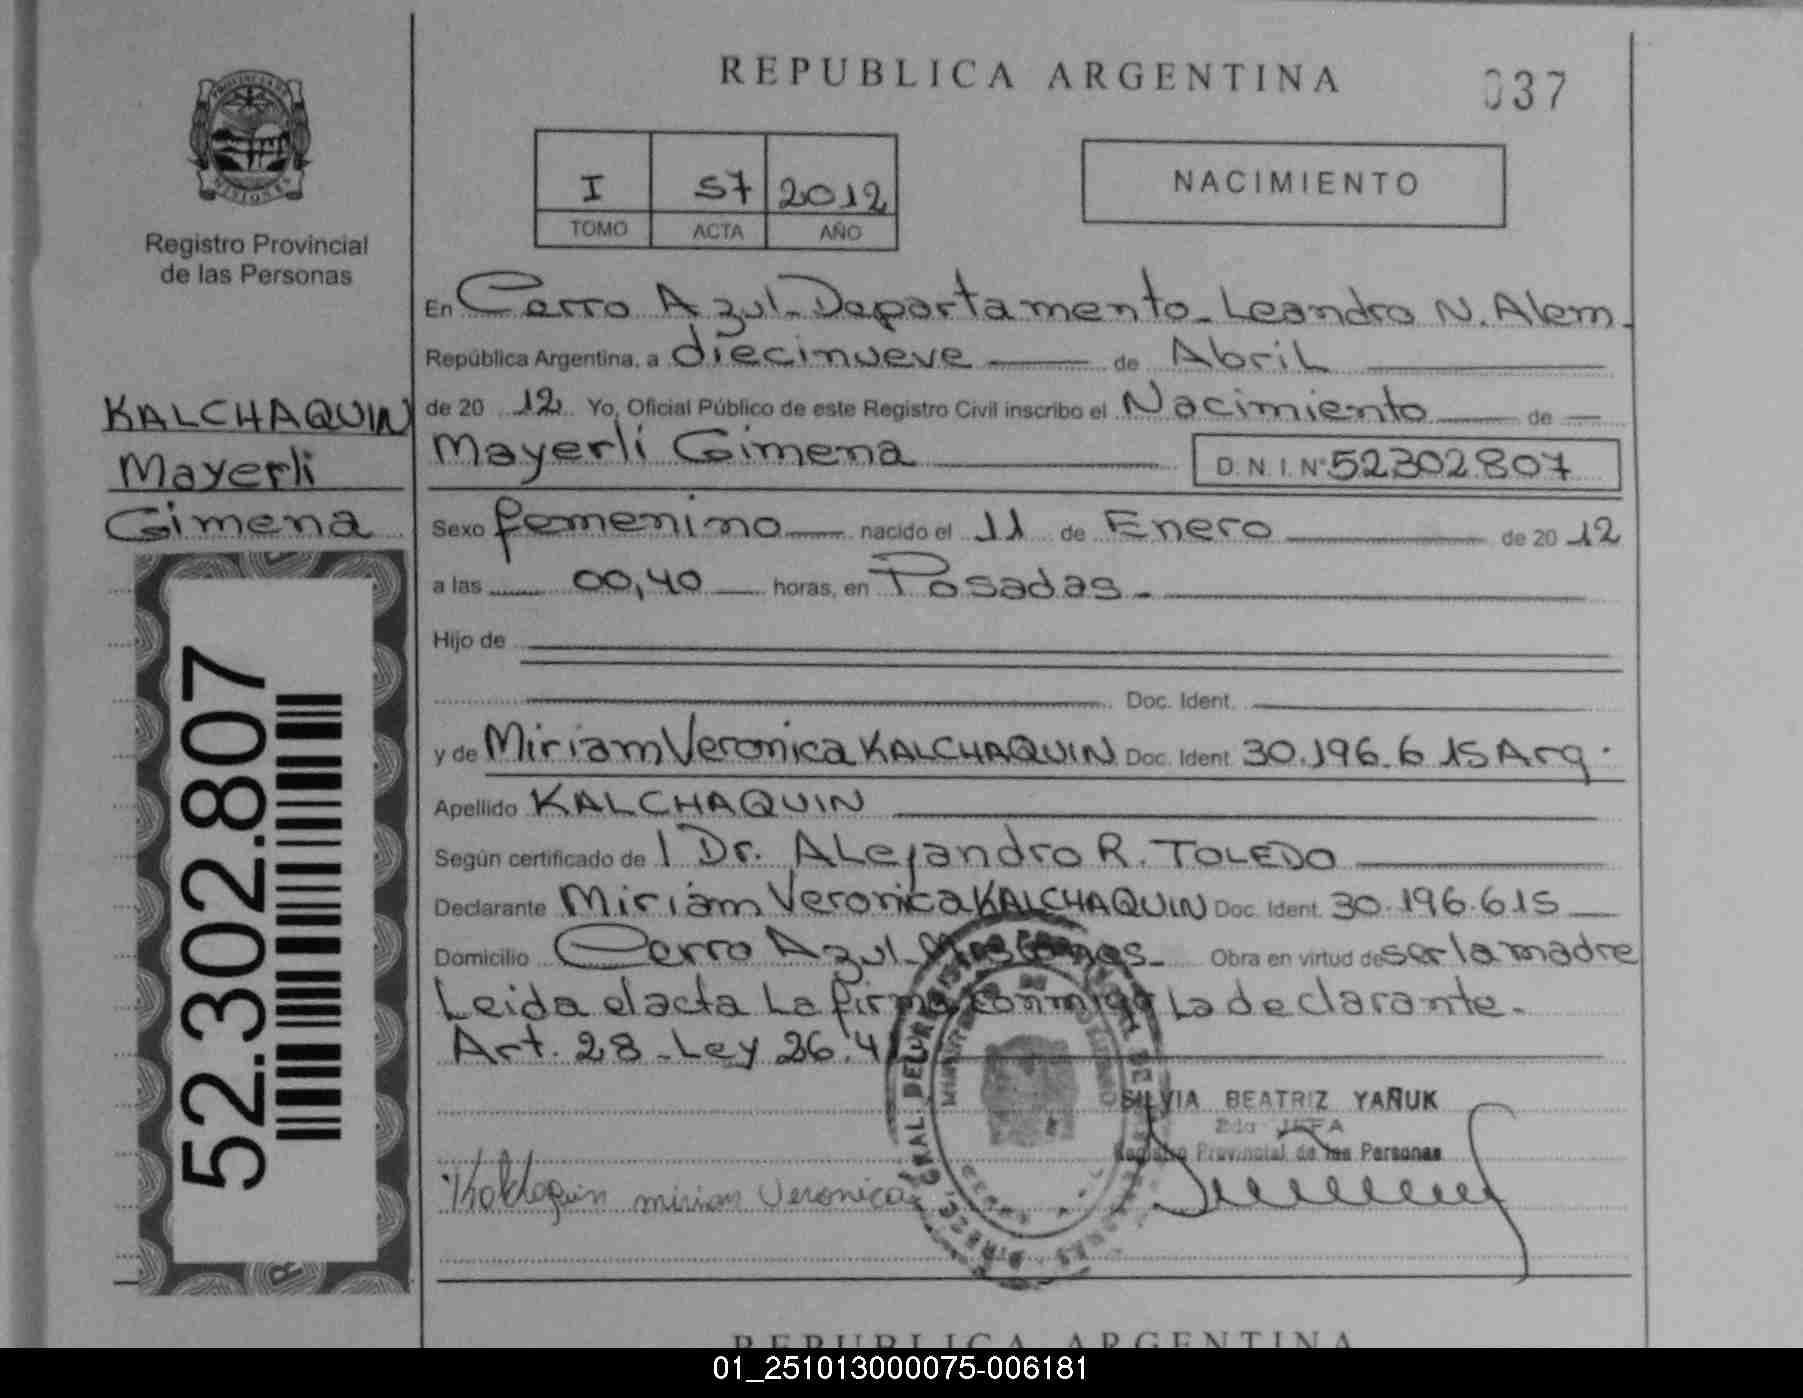 REPUBLICA ARGENTINA
037
PROVINCIA DE
MISIONES
Registro Provincial
de las Personas
I S7 2012
TOMO ACTA AÑO
NACIMIENTO
En Cerro Azul - Departamento - Leandro N. Alem -
República Argentina, a diecinueve de Abril
de 20 12 Yo, Oficial Público de este Registro Civil inscribo el Nacimiento de
KALCHAQUIN
Mayerli
Gimena
Mayerli Gimena D. N. I. Nº 52302807
Sexo femenino nacido el 11 de Enero de 20 12
a las 00,40 horas, en Posadas -
Hijo de
Doc. Ident.
y de Miriam Veronica KALCHAQUIN Doc. Ident. 30.196.615 Arg.
Apellido KALCHAQUIN
Según certificado de l Dr. ALejandro R. TOLEDO
Declarante Miriam Veronica KALCHAQUIN Doc. Ident. 30.196.615
Domicilio Cerro Azul - Misiones - Obra en virtud de ser la madre
Leida el acta La firma conmigo La declarante -
Art. 28 - Ley 26.4
SILVIA BEATRIZ YAÑUK
2da JEFA
Registro Provincial de las Personas
Kalchaquin mirian Veronica
52.302.807
REPUBLICA ARGENTINA
01_251013000075-006181